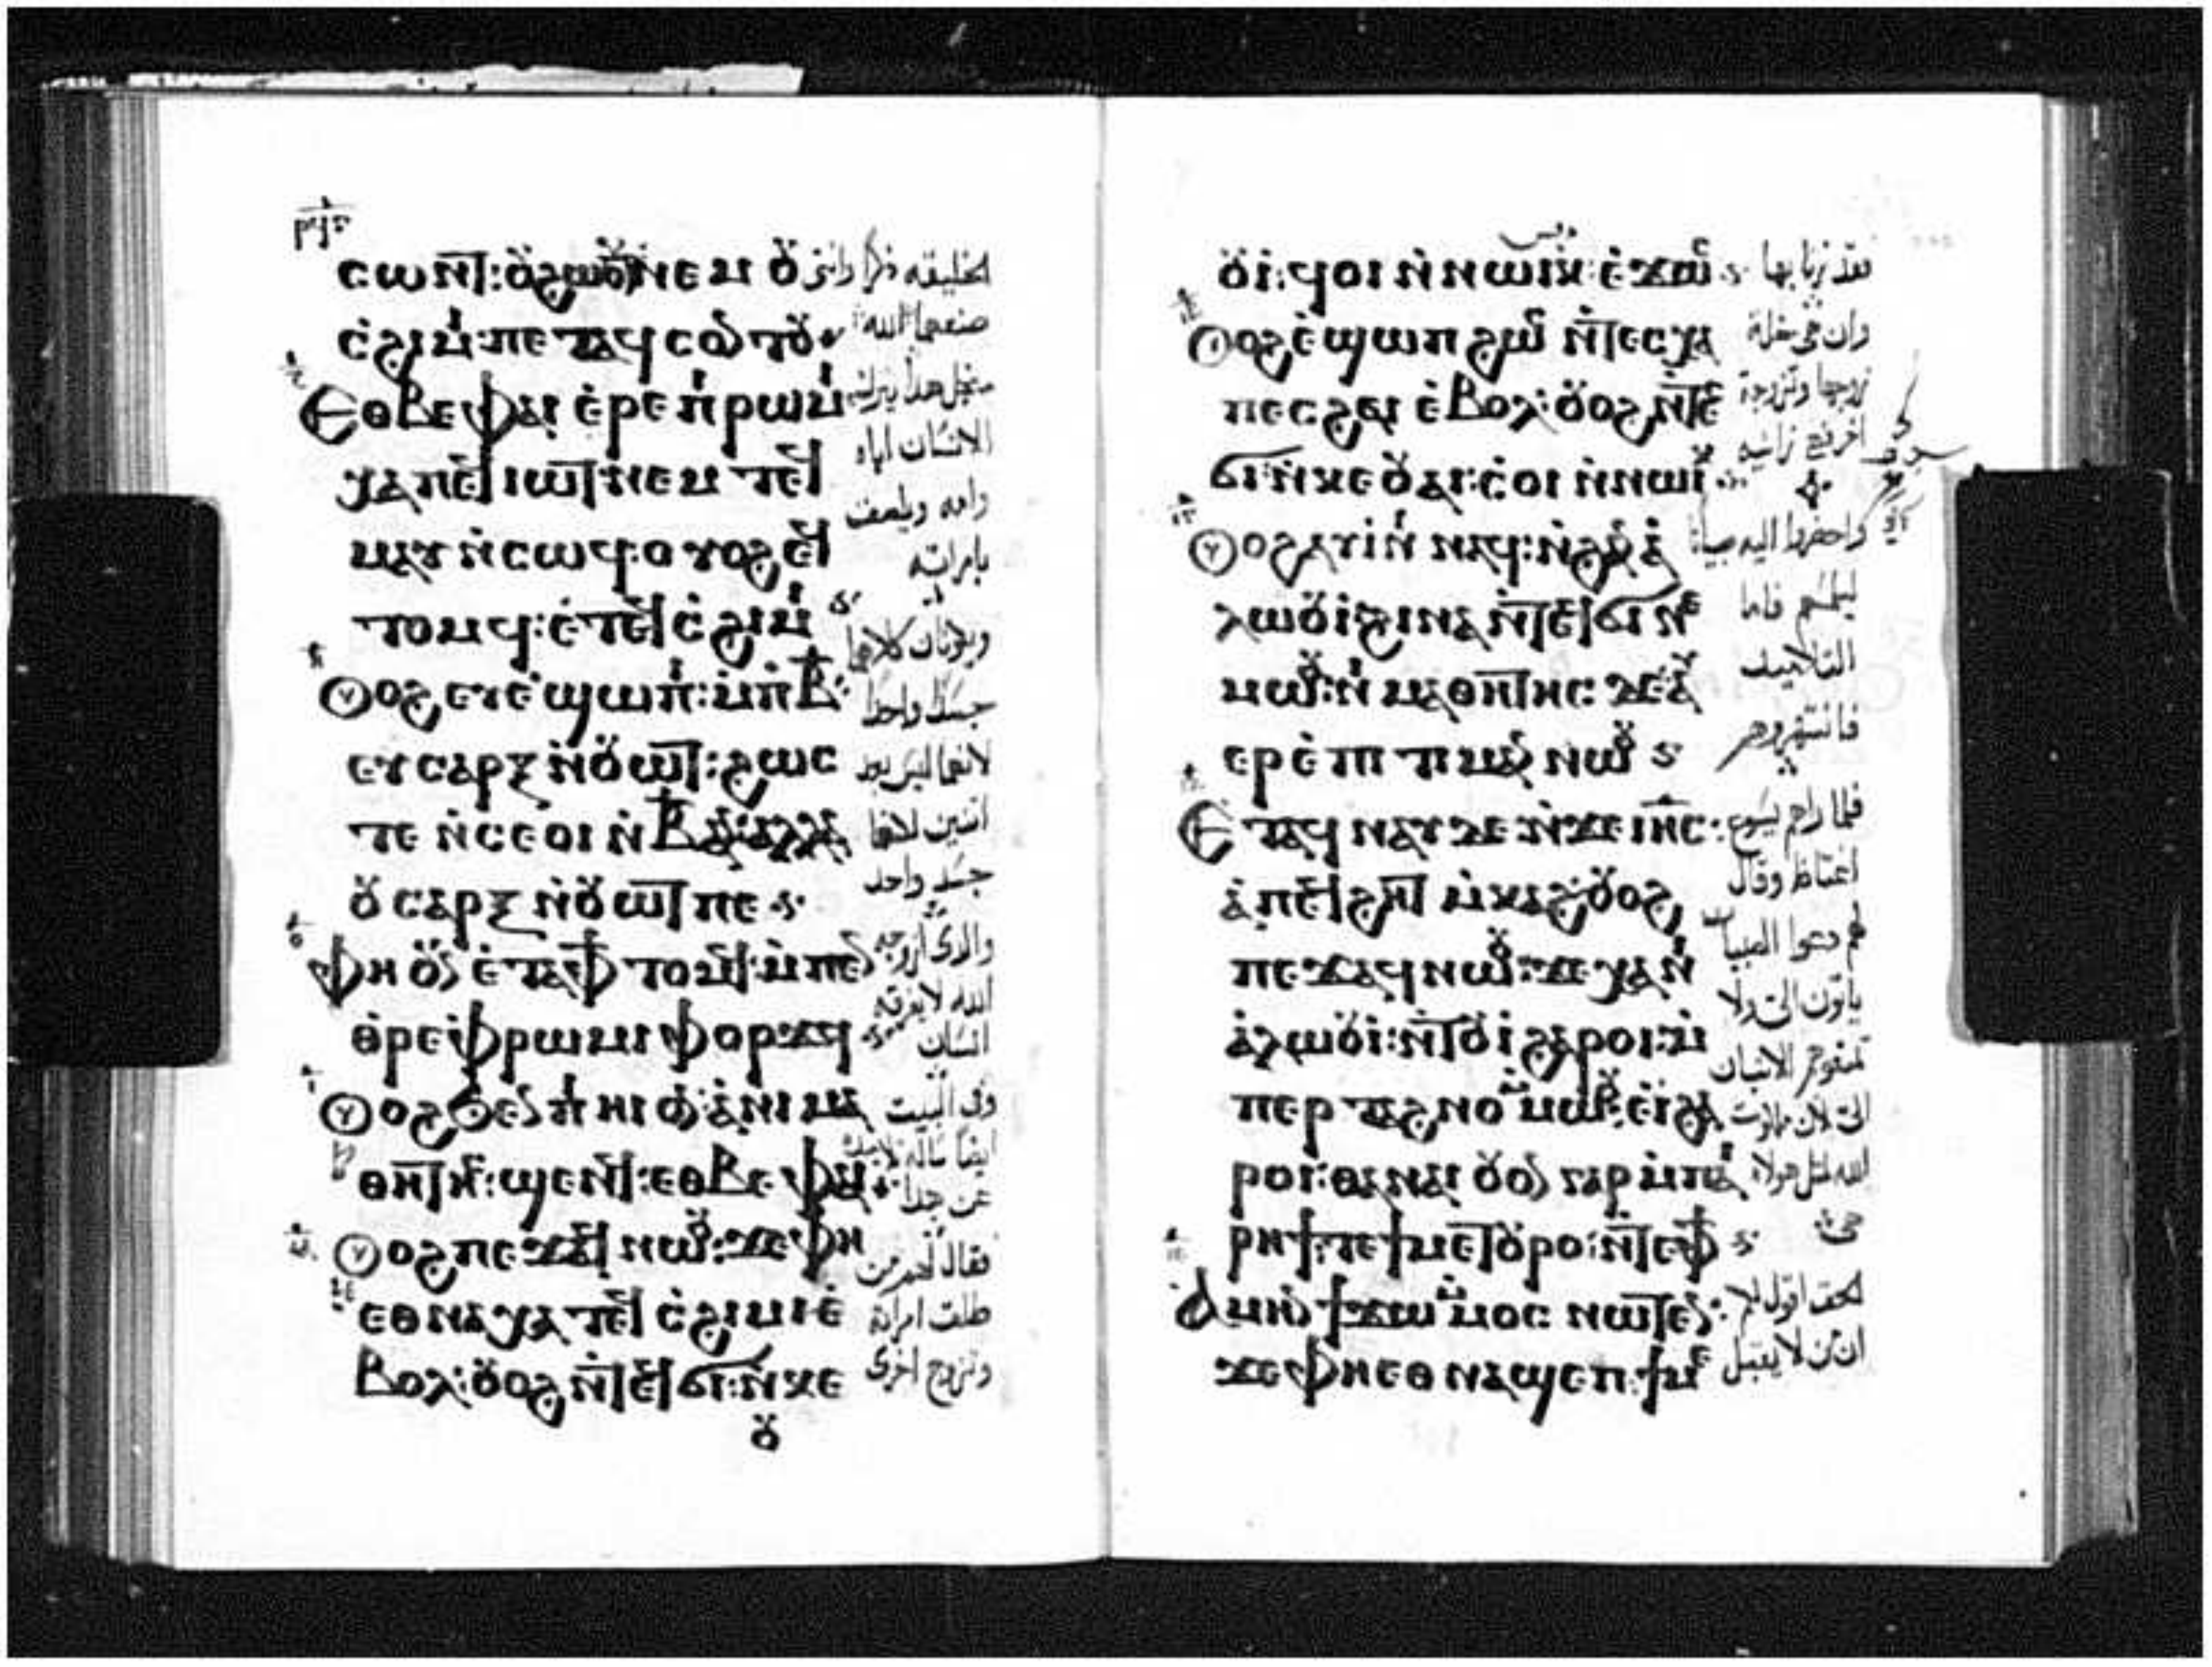 ⲥⲱⲛⲧ:ⲟⲩϩⲱⲟⲩⲧ ⲛⲉⲙ ⲟⲩ
ⲥ̇ϩⲓⲙⲓ:ⲡⲉⲧⲁϥⲥⲟⲛⲧⲟⲩ
Ⲉⲑⲃⲉⲫⲁⲓ ⲉ̇ⲣⲉ ⲡⲓⲣⲱⲙⲓ
ⲭⲁ ⲡⲉϥⲓⲱⲧ:ⲛⲉⲙ ⲧⲉϥ
ⲙⲁⲩ ⲛ̇ⲥⲱϥ:ⲟⲩⲟϩ ⲉϥ
ⲧⲟⲙϥ:ⲉ̇ⲧⲉϥⲥ̇ϩⲓⲙⲓ
Ⲟⲩⲟϩ ⲉⲩⲉ̇ϣⲱⲡⲓ:ⲙ̇ⲡⲃ̅:
ⲉⲩⲥⲁⲣⲝ ⲛ̇ⲟⲩⲱⲧ:ϩⲱⲥ
ⲧⲉ ⲛ̇ⲥⲉⲟⲓ ⲛ̇ⲃ̅ ⲁⲛ:ⲁⲗⲗⲁ
ⲟⲩⲥⲁⲣⲝ ⲛ̇ⲟⲩⲱⲧ ⲡⲉ
ⲫⲏ ⲟⲩⲛ ⲉ̇ⲧⲁⲫϯ ⲧⲟⲙϥ:ⲙ̇ⲡⲉⲛ
ⲑⲣⲉⲫⲣⲱⲙⲓ ⲫⲟⲣϫϥ
Ⲟⲩⲟϩ ϧⲉⲛ ⲡⲓⲏⲓ ⲟⲛ:ⲁ̇ⲛⲓⲙⲁ
ⲑⲏⲧⲏⲥ:ϣⲉⲛϥ:ⲉⲑⲃⲉ ⲫⲁⲓ
Ⲟⲩⲟϩ ⲡⲉϫⲁϥ ⲛⲱⲟⲩ:ϫⲉ ⲫⲏ
ⲉⲑⲛⲁⲭⲁ ⲧⲉϥⲥ̇ϩⲓⲙⲓ ⲉ̇
ⲃⲟⲗ:ⲟⲩⲟϩ ⲛ̇ⲧⲉϥϭⲓ:ⲛ̇ⲕⲉ
ⲟⲩ
الخليقه ذكرا وانثى
صنعهما الله
الانسان اباه
وامه ويلصق
بامراته
ويكونان كلاهما
جسدًا واحدًا
اثنين لانهما
جسد واحد
والذى ازوجه
الله لا يفرقه
انسان
وفى البيت
عن هذا
فقال لهم من
طلق امراته
وتزوج اخرى
ⲟⲩⲓ̇:ϥⲟⲓ ⲛ̇ⲛⲱⲓⲕ:ⲉ̇ϫⲱⲥ
Ⲟⲩⲟϩ ⲉ̇ϣⲱⲡ ϩⲱⲥ ⲛ̇ⲧⲉⲥⲭⲁ
ⲡⲉⲥϩⲁⲓ ⲉ̇ⲃⲟⲗ:ⲟⲩⲟϩ ⲛ̇ⲧⲉ
ϭⲓ:ⲛ̇ⲕⲉⲟⲩⲁⲓ:ⲥ̇ⲟⲓ ⲛ̇ⲛⲱⲓⲕ
Ⲟⲩⲟϩ ⲁⲩⲓ̇ⲛⲓ ⲛⲁϥ:ⲛ̇ϩⲁⲛⲁ̇
ⲗⲱⲟⲩⲓ̇ ϩⲓⲛⲁ ⲛ̇ⲧⲉϥϭⲓ ⲛⲉ
ⲙⲱⲟⲩ:ⲛⲓⲙⲁⲑⲏⲧⲏⲥ ⲇⲉ:ⲁⲩ
ⲉⲣⲉ̇ⲡⲓⲧⲓⲙⲁⲛ ⲛⲱⲟⲩ
Ⲉⲧⲁϥⲛⲁⲩ ⲇⲉ ⲛ̇ϫⲉ ⲓⲏ̅ⲥ̅:
ⲁ̇ⲡⲉϥϩⲏⲧ ⲙ̇ⲕⲁϩ:ⲟⲩⲟϩ
ⲡⲉϫⲁϥ ⲛⲱⲟⲩ:ϫⲉ ⲭⲁ ⲛⲓ
ⲁ̇ⲗⲱⲟⲩⲓ̇:ⲛ̇ⲧⲟⲩⲓ̇ ϩⲁⲣⲟⲓ:ⲙ̇
ⲡⲉⲣⲧⲁϩⲛⲟ ⲙ̇ⲙⲱⲟⲩ:ⲉ̇ⲓ̇ ϩⲁ
ⲣⲟⲓ:ⲑⲁ ⲛⲁⲓ ⲟⲩⲟⲛ ⲅⲁⲣ ⲙ̇ⲡⲁⲓ
ⲣⲏϯ:ⲧⲉ ϯⲙⲉⲧⲟⲩⲣⲟ:ⲛ̇ⲧⲉⲫϯ
Ⲁⲙⲏⲛ ϯϫⲱ ⲙ̇ⲙⲟⲥ ⲛⲱⲧⲉⲛ:
ϫⲉ ⲫⲏ ⲉⲑⲛⲁϣⲉⲡ:ϯⲙⲉ
فقد زنا بها
وان هى خلة
زوجها وتزوجة
اخر فهى زانيه
ليلمسهم فاما
التلاميذ
فانتهروهم
فلما راهم يسوع
اغتاظ وقال
لهم دعوا الصبيان
ياتون الىّ ولا
الحق اقول لكم
ان من لا يقبل